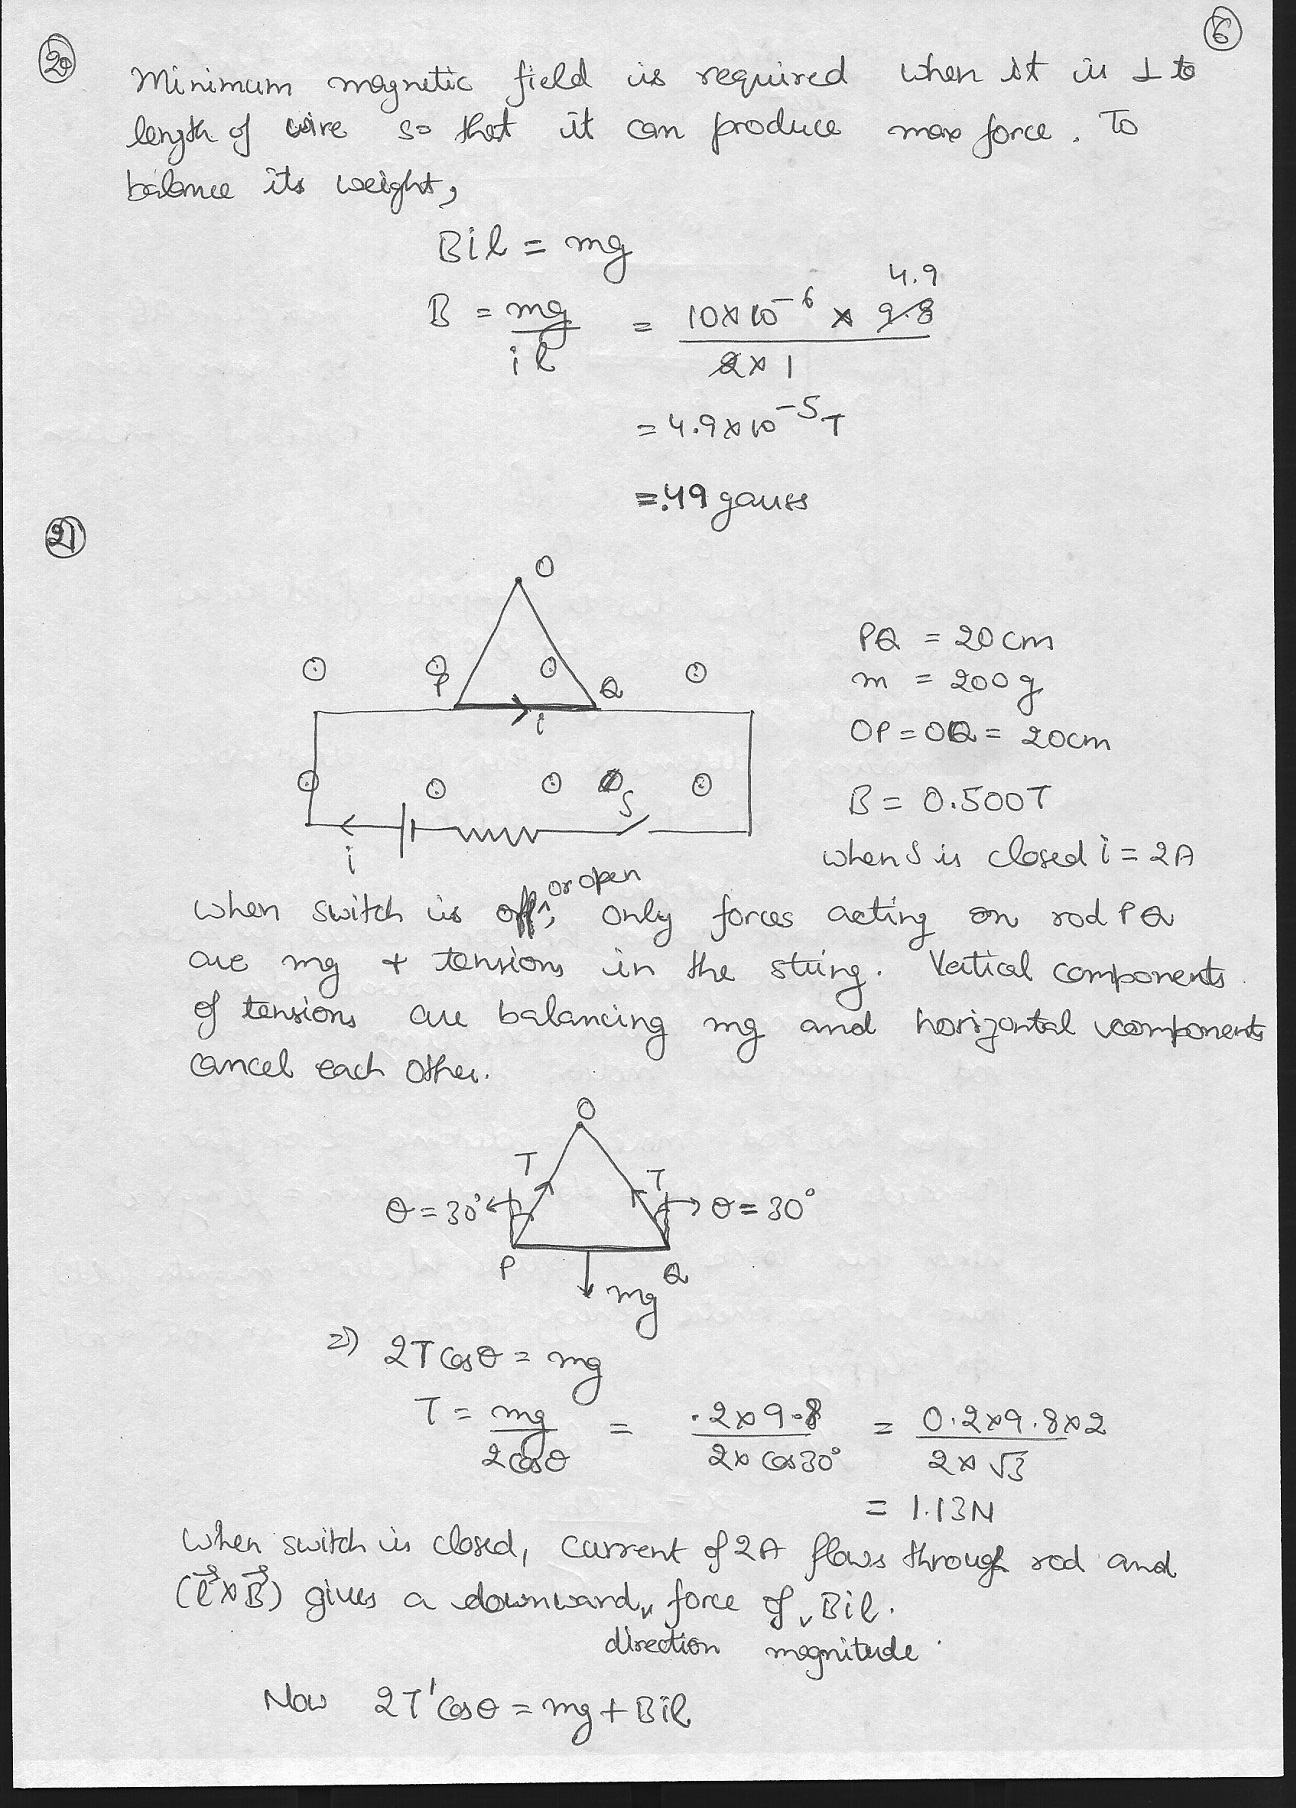 6
20
Minimum magnetic field is required when it is ⊥ to
length of wire so that it can produce max force. To
balance its weight,
Bil = mg
B = mg/il = 10×10⁻⁶ × 9.8 4.9 / 2×1
= 4.9×10⁻⁵ T
= .49 gauss
21
O
P Q
i
S
i
PQ = 20 cm
m = 200 g
OP = OQ = 20cm
B = 0.500T
when S is closed i = 2A
When switch is off, or open only forces acting on rod PQ
are mg + tensions in the string. Vertical components
of tensions are balancing mg and horizontal components
cancel each other.
O
T T
θ = 30° θ = 30°
P Q
mg
⇒ 2T cosθ = mg
T = mg/2cosθ = .2×9.8/2×cos30° = 0.2×9.8×2/2×√3
= 1.13N
When switch is closed, current of 2A flows through rod and
(l⃗×B⃗) gives a downward force of Bil.
direction magnitude
Now 2T'cosθ = mg + Bil